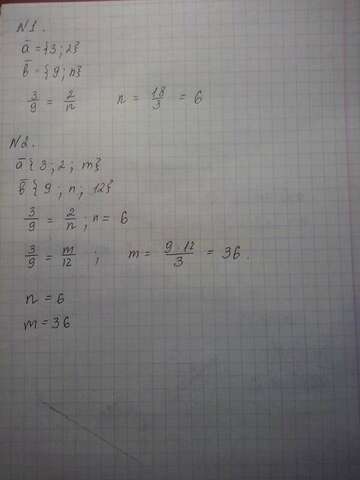 N1.
ā = {3; 2}
b̄ = {9; n}
3/9 = 2/n    n = 18/3 = 6
N2.
ā {3; 2; m}
b̄ {9; n, 12}
3/9 = 2/n; n = 6
3/9 = m/12 ;    m = 9·12/3 = 36.
n = 6
m = 36